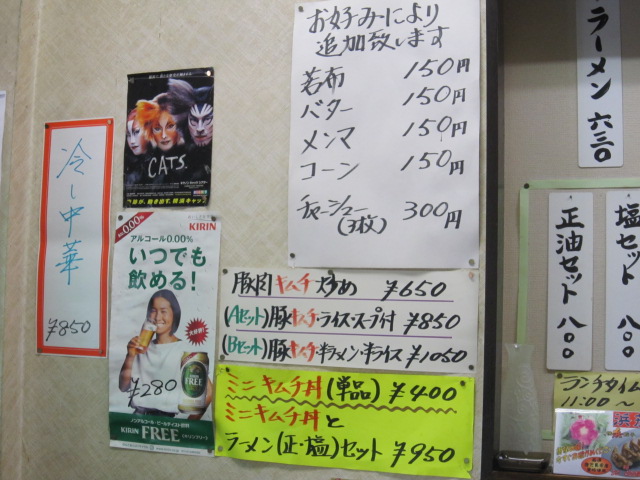 冷し中華
¥850
CATS
0.00%
KIRIN
アルコール0.00%
いつでも
飲める!
¥280
ノンアルコール・ビールテイスト飲料
KIRIN FREE
お好みにより
追加致します
若布 150円
バター 150円
メンマ 150円
コーン 150円
チャーシュー(3枚) 300円
豚肉キムチ炒め ¥650
(Aセット)豚キムチ・ライス・スープ付 ¥850
(Bセット)豚キムチ・半ラーメン・半ライス ¥1050
ミニキムチ丼(単品) ¥400
ミニキムチ丼と
ラーメン(正・塩)セット ¥950
ラーメン 六三〇
正油セット 八〇〇
塩セット 八〇〇
ランチタイム
11:00~